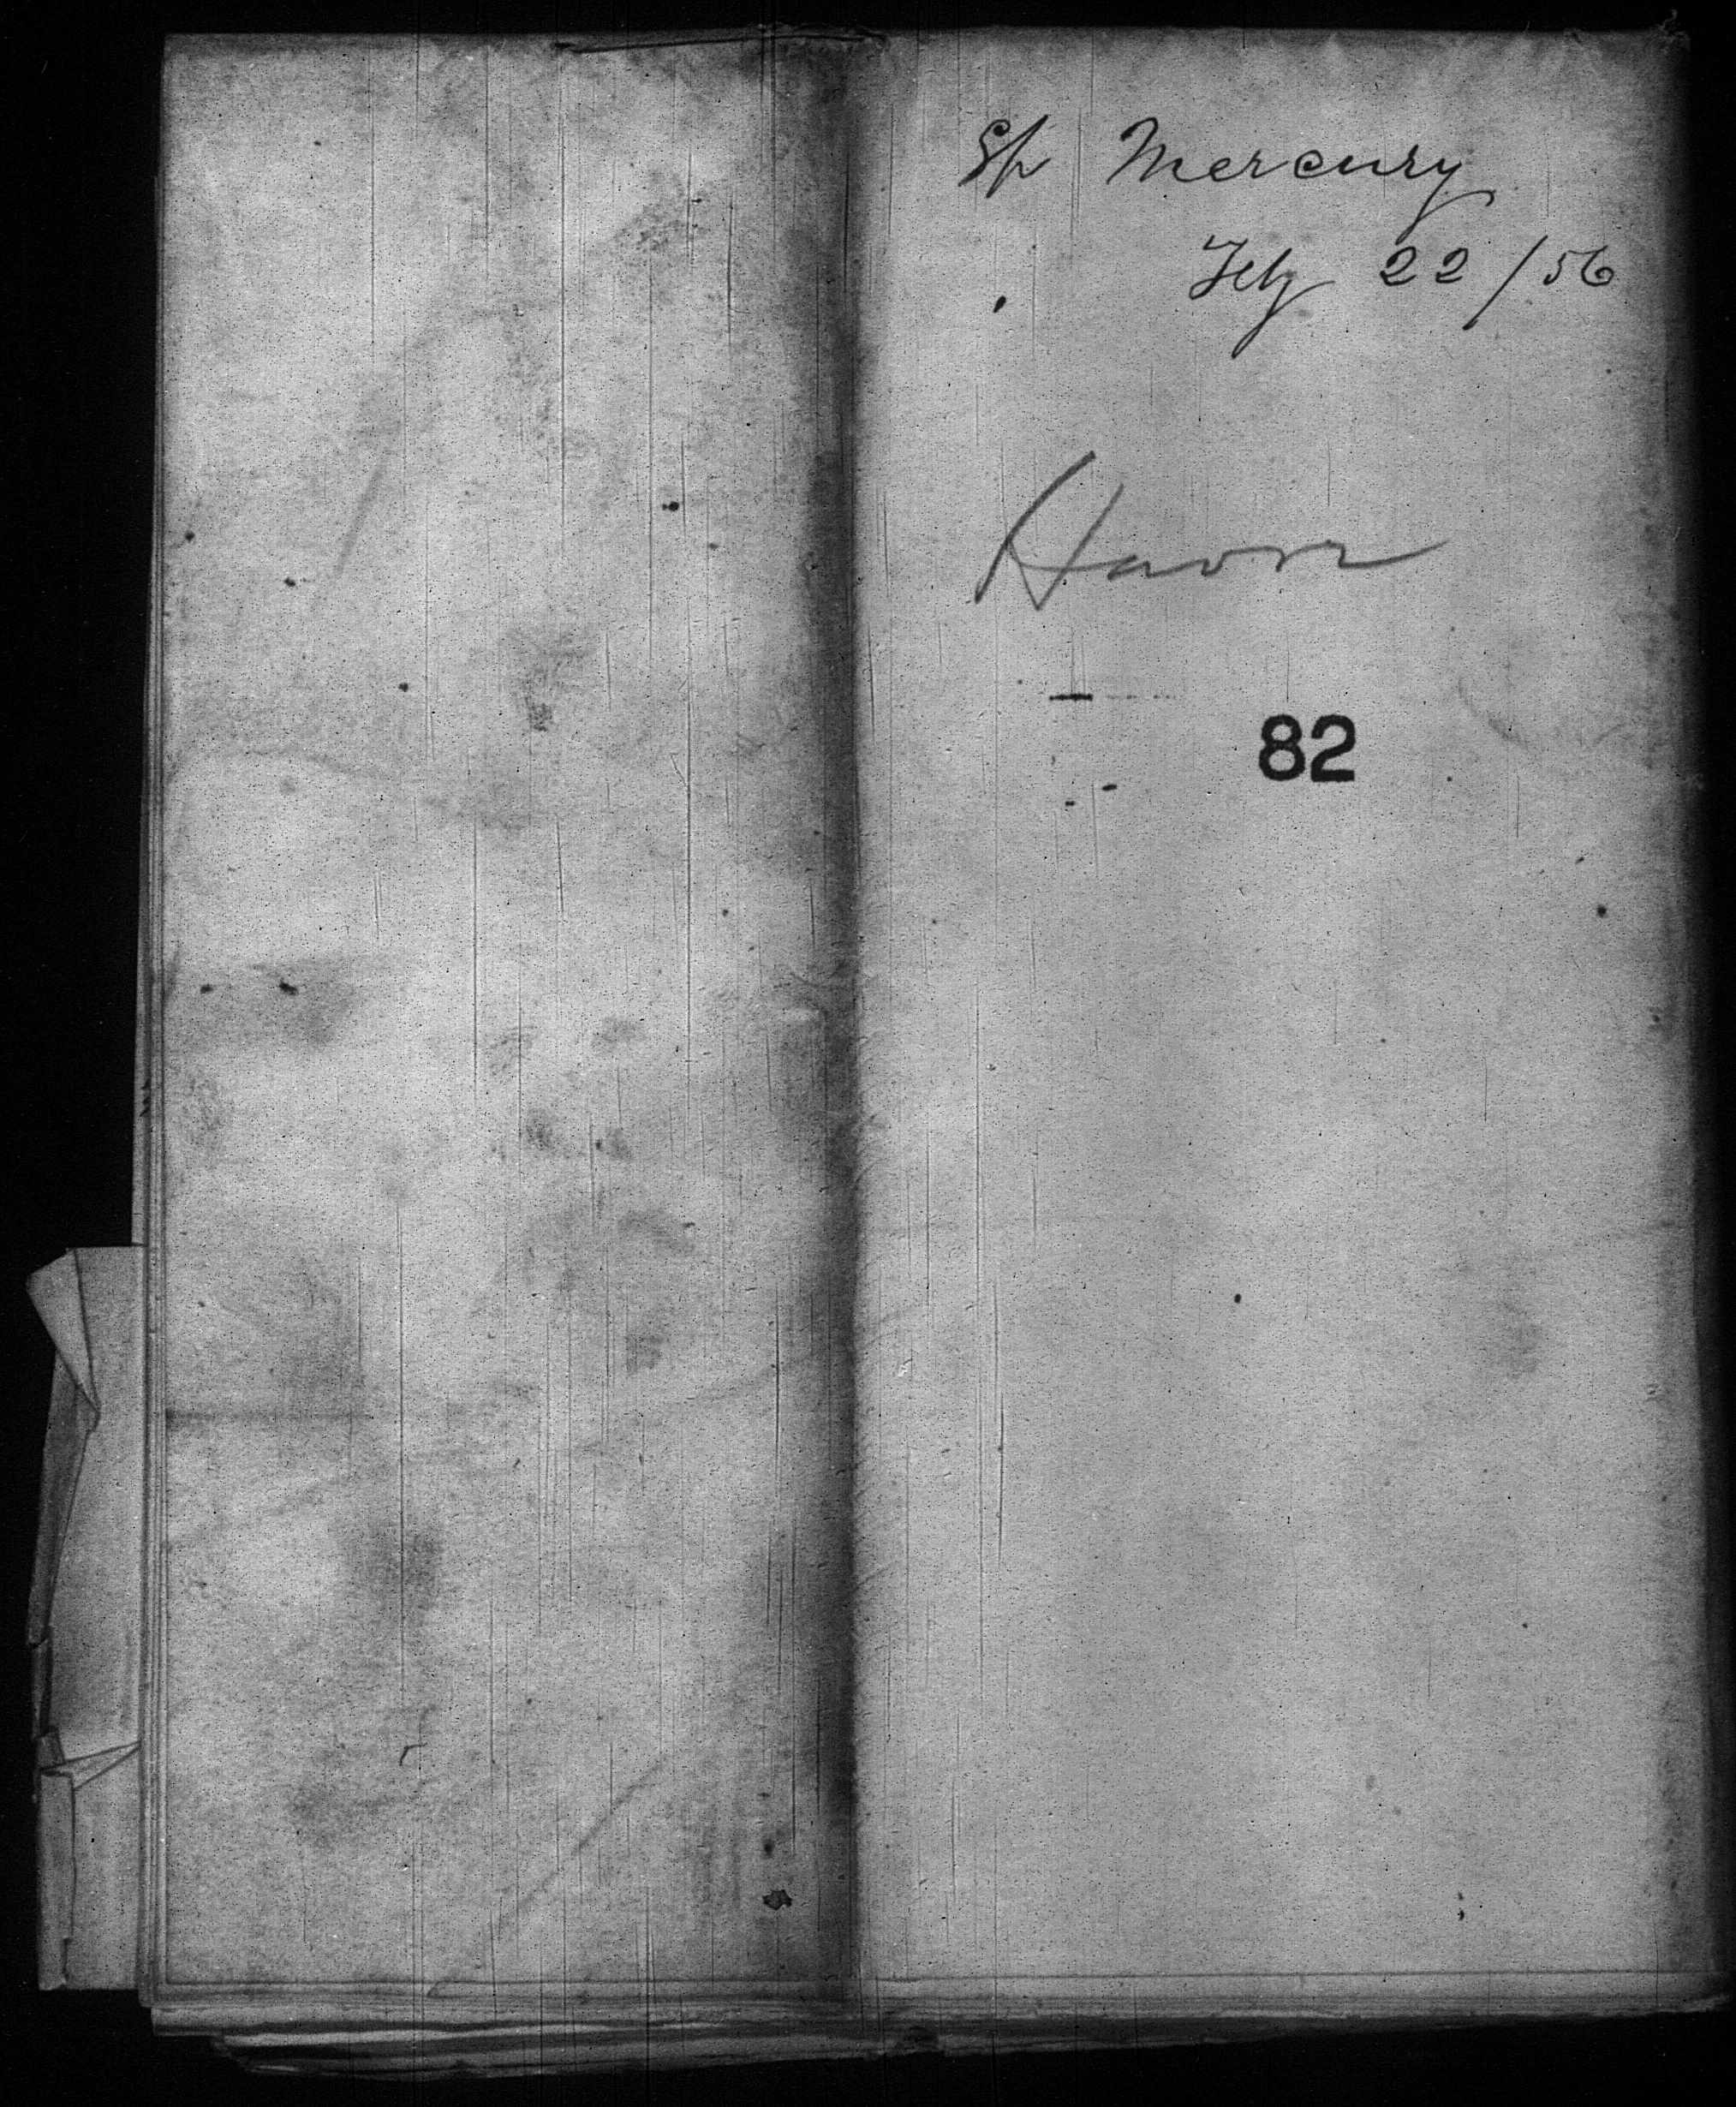 Sh Mercury
Feby 22/56
Havre
82